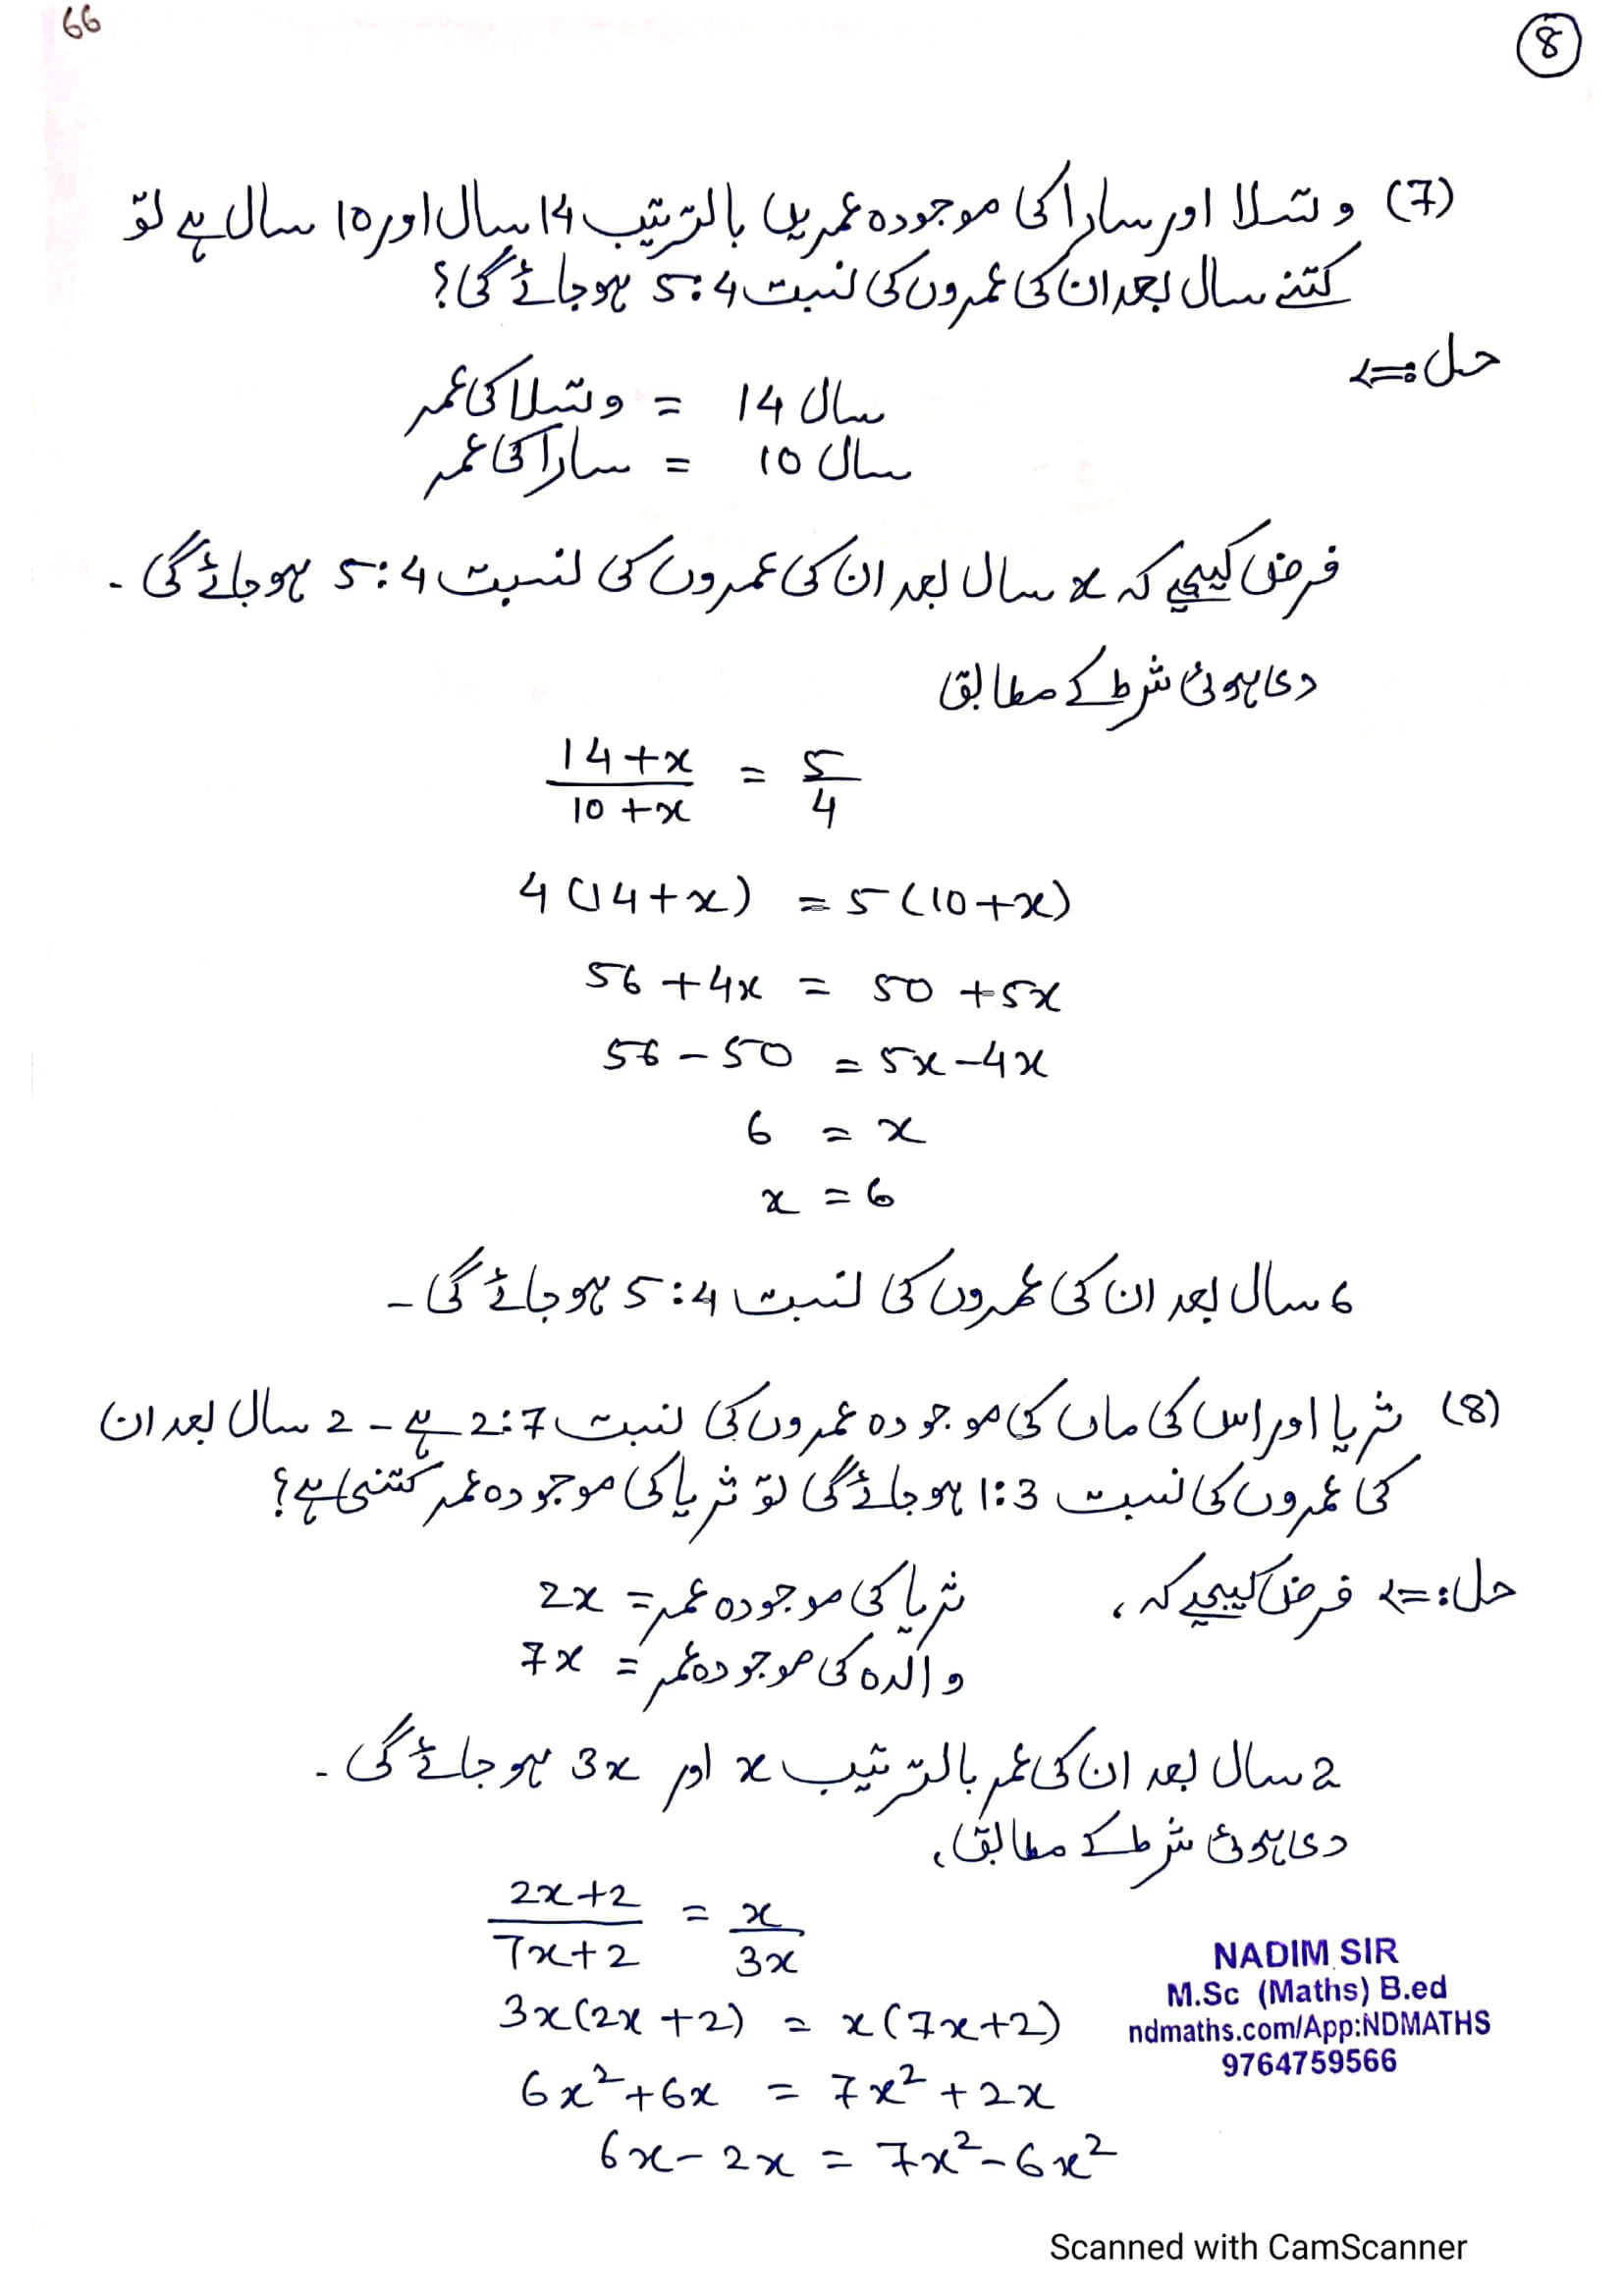 66
8
(7) وتسلا اور سارا کی موجودہ عمریں بالترتیب 14 سال اور 10 سال ہے تو
کتنے سال بعد ان کی عمروں کی نسبت 5:4 ہو جائے گی؟
حل:⇐
وتسلا کی عمر = 14 سال
سارا کی عمر = 10 سال
فرض کیجیے کہ x سال بعد ان کی عمروں کی نسبت 5:4 ہو جائے گی۔
دی ہوئی شرط کے مطابق
14+x / 10+x = 5/4
4(14+x) = 5(10+x)
56+4x = 50+5x
56-50 = 5x-4x
6 = x
x = 6
6 سال بعد ان کی عمروں کی نسبت 5:4 ہو جائے گی۔
(8) ثریا اور اس کی ماں کی موجودہ عمروں کی نسبت 2:7 ہے۔ 2 سال بعد ان
کی عمروں کی نسبت 1:3 ہو جائے گی تو ثریا کی موجودہ عمر کتنی ہے؟
حل:⇐ فرض کیجیے کہ، ثریا کی موجودہ عمر = 2x
والدہ کی موجودہ عمر = 7x
2 سال بعد ان کی عمر بالترتیب x اور 3x ہو جائے گی۔
دی ہوئی شرط کے مطابق،
2x+2 / 7x+2 = x/3x
3x(2x+2) = x(7x+2)
6x²+6x = 7x²+2x
6x-2x = 7x²-6x²
NADIM SIR
M.Sc (Maths) B.ed
ndmaths.com/App:NDMATHS
9764759566
Scanned with CamScanner